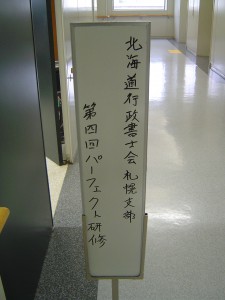 北海道行政書士会札幌支部
第四回パーフェクト研修